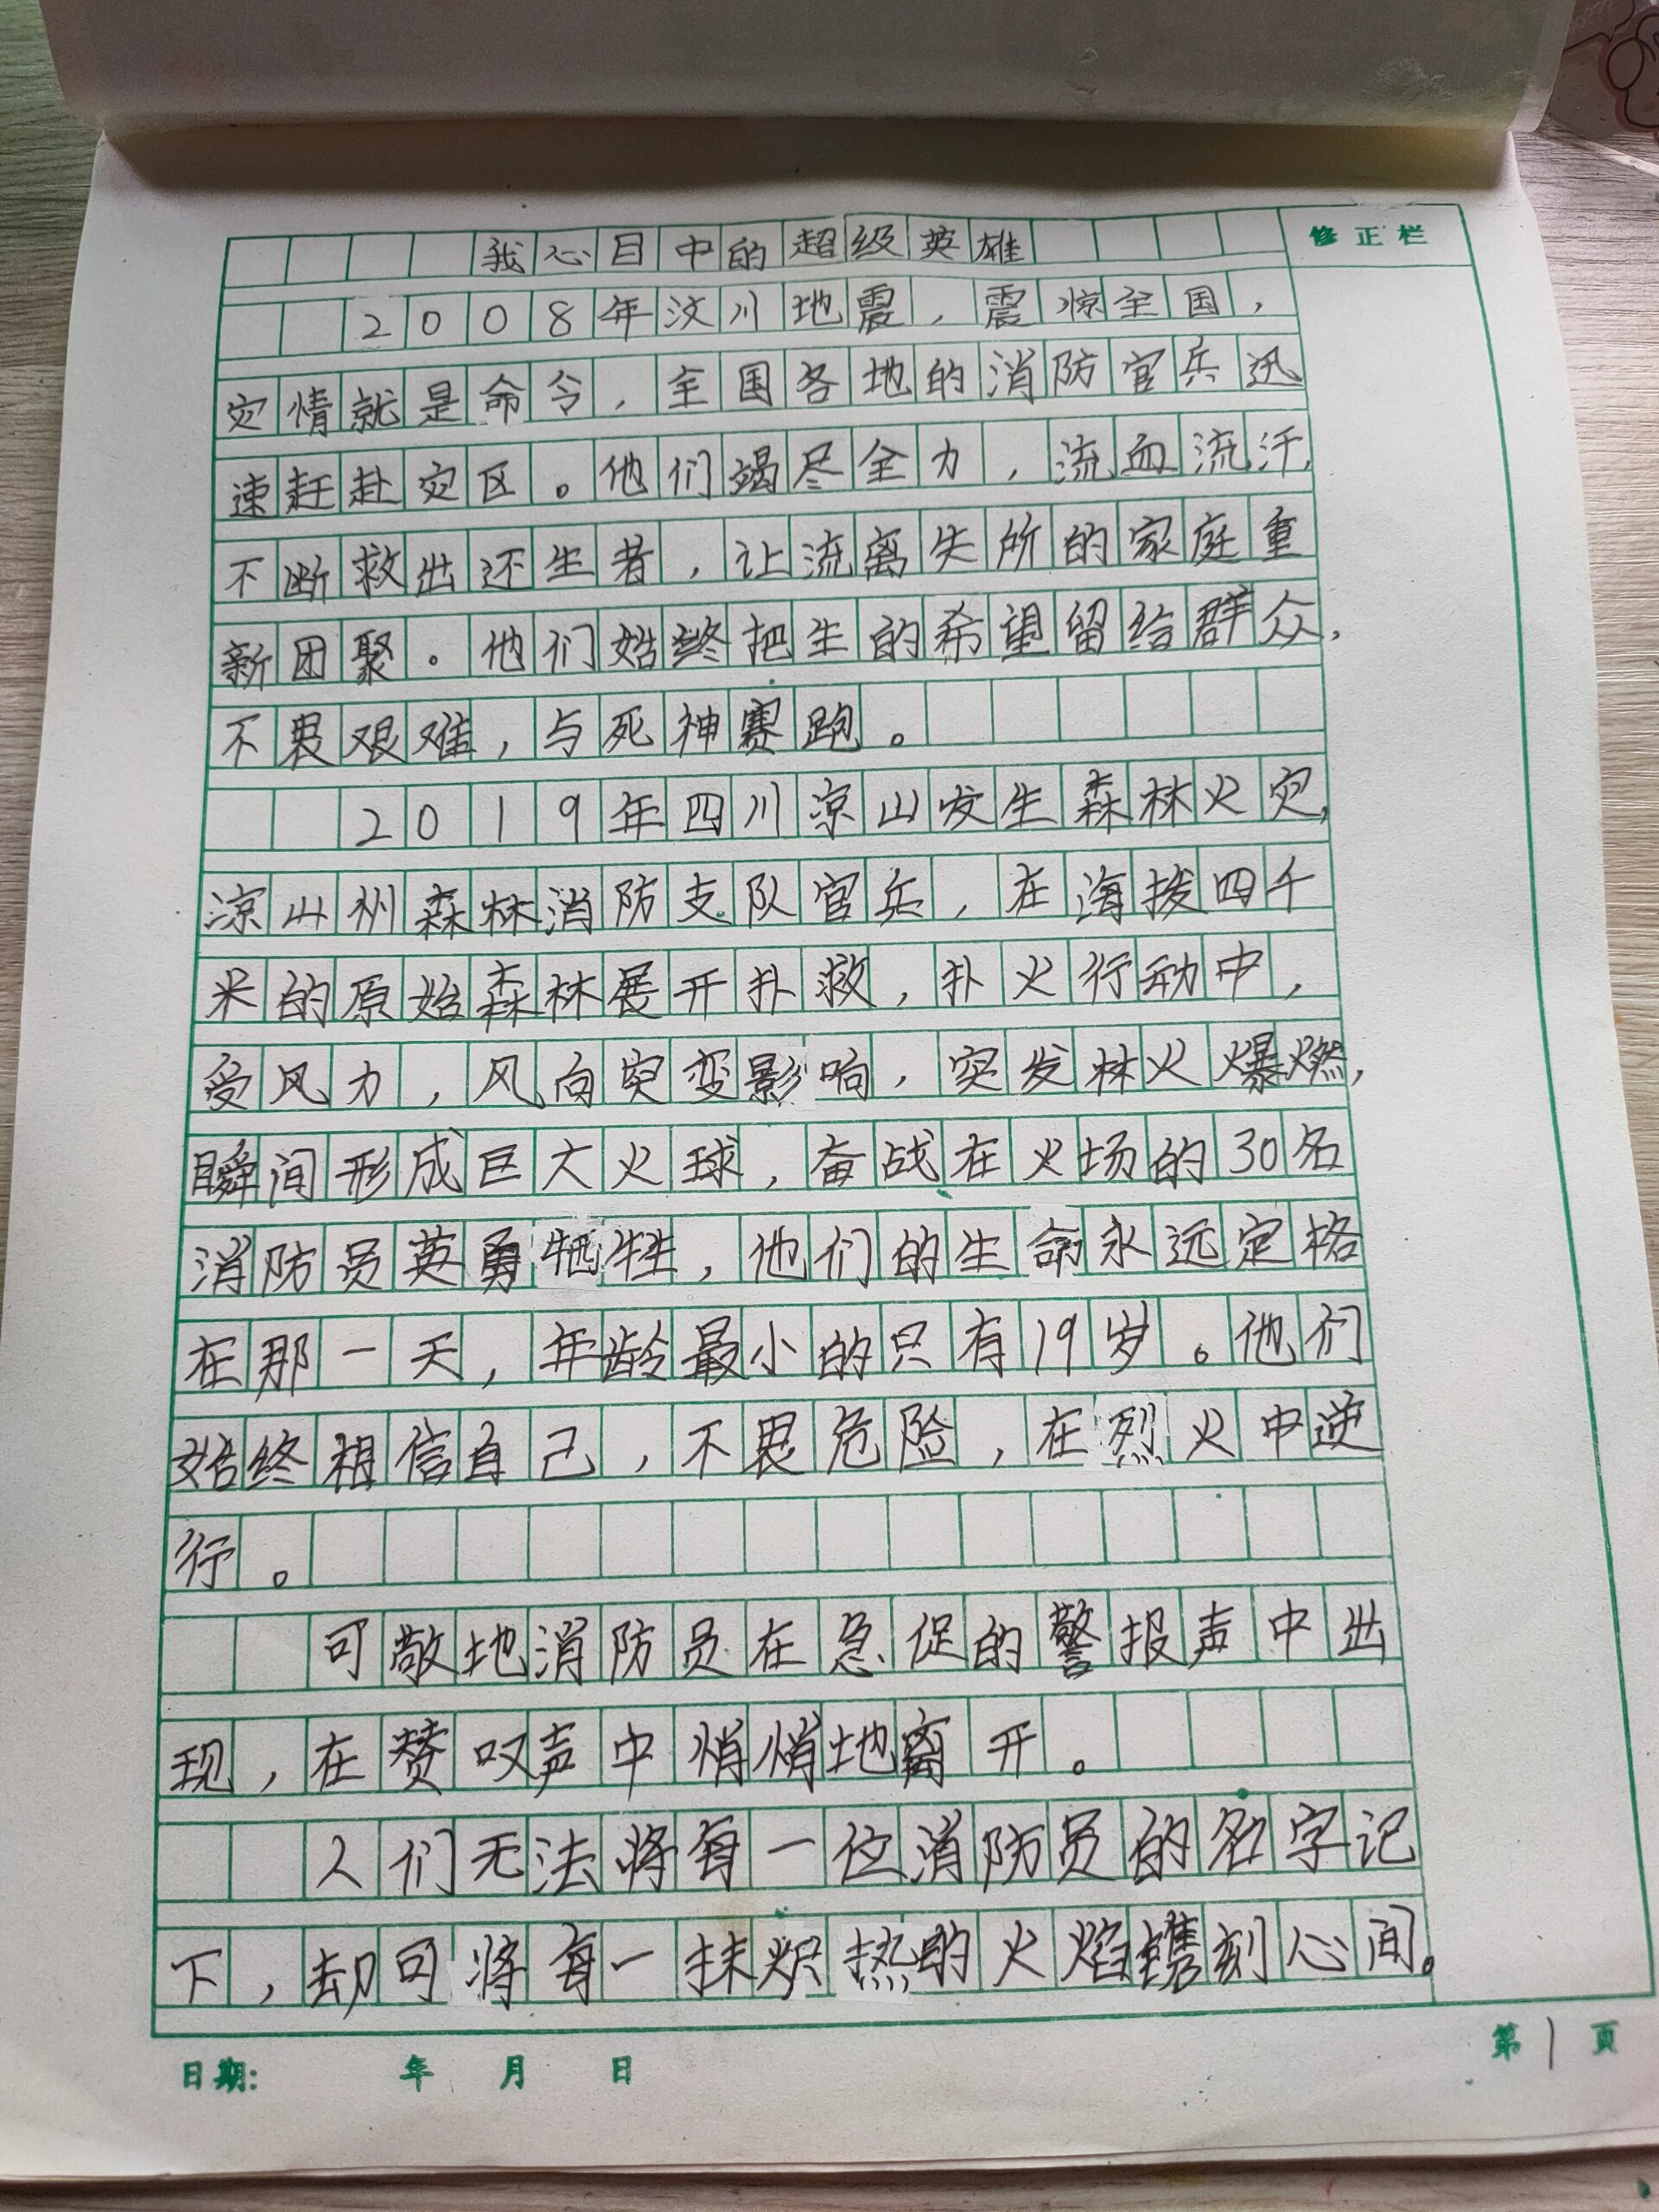 我心目中的超级英雄
修正栏
2008年汶川地震，震惊全国，
灾情就是命令，全国各地的消防官兵迅
速赶赴灾区。他们竭尽全力，流血流汗，
不断救出还生者，让流离失所的家庭重
新团聚。他们始终把生的希望留给群众，
不畏艰难，与死神赛跑。
2019年四川凉山发生森林火灾，
凉山州森林消防支队官兵，在海拨四千
米的原始森林展开扑救，扑火行动中，
受风力，风向突变影响，突发林火爆燃，
瞬间形成巨大火球，奋战在火场的30名
消防员英勇牺牲，他们的生命永远定格
在那一天，年龄最小的只有19岁。他们
始终相信自己，不畏危险，在烈火中逆
行。
可敬地消防员在急促的警报声中出
现，在赞叹声中悄悄地离开。
人们无法将每一位消防员的名字记
下，却可将每一抹炽热的火焰镌刻心间。
日期： 年 月 日
第1页